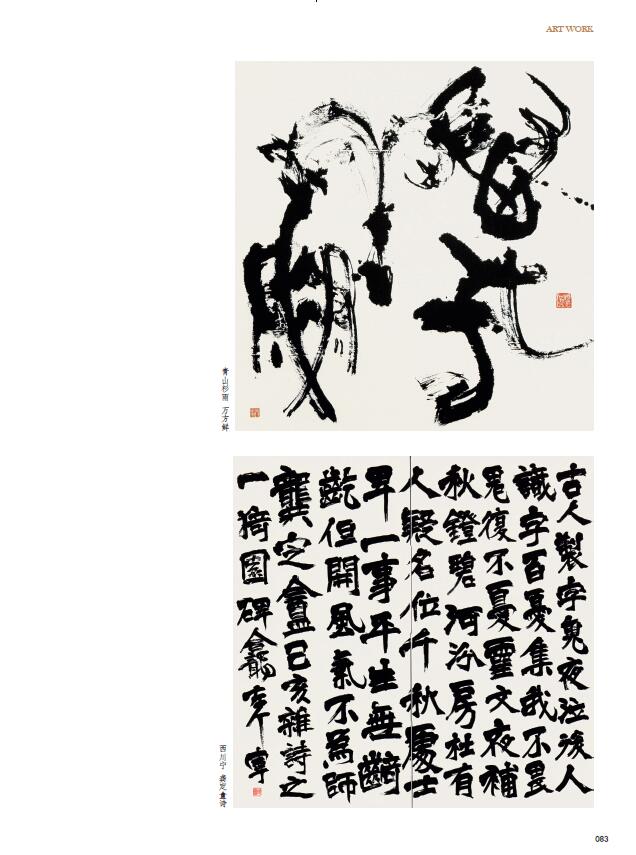 ART WORK
青山杉雨 万方鲜
古人製字鬼夜泣後人
識字百憂集我不畏
鬼復不憂靈文夜補
秋鐙碧河汾房杜有
人疑名位千秋處士
卑一事平生無齮
齕但開風氣不為師
龔定盦己亥雜詩之
一猗園碑龕寧
西川宁 龚定盦诗
083